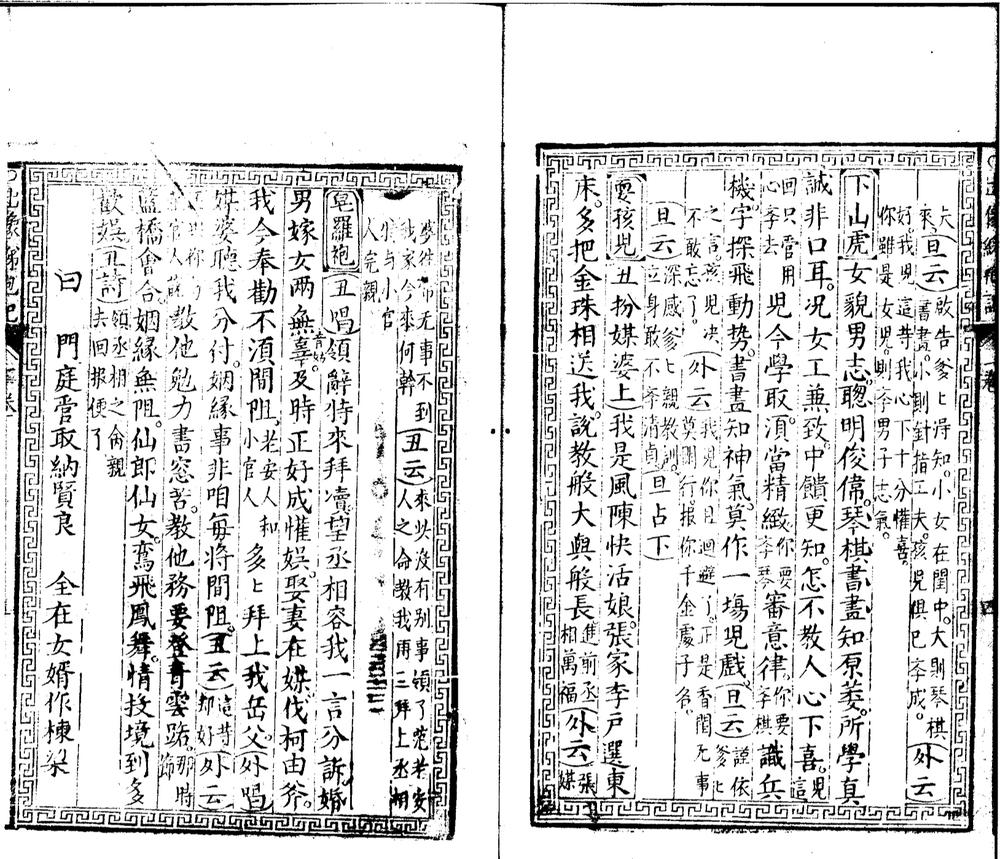 夫來(旦云)啟告爹匕得知小女在閨中大則琴棋書畫小則針指工夫孩兒俱已李成(外云)
好我兒這等我心下十分懽喜你雖是女兒則李男子志氣
下山虎 女貌男志聰明俊偉琴棋書畫知原委所學真
誠非口耳况女工兼致中饋更知怎不教人心下喜
兒今學取須當精緻你要李琴審意律你要李棋識兵
機字探飛動勢書畫知神氣莫作一塲兒戲(旦云)謹依爹匕
之言孩兒决不敢忘了(外云)我兒你且迴避了正是香閨无事
(旦云)深感爹匕親教訓立身敢不李清貞(旦占下)
耍孩兒 丑扮媒婆上 我是風陳快活娘張家李戶選東
床多把金珠相送我說教般大與般長進前丞相萬福(外云)張媒
无事不到(丑云)來必沒有别事領了老安
我家今來何幹人之命教我用三拜上丞相
與小官人完親
皂羅袍(丑唱)領辭特來拜凟望丞相容我一言分訴婚
男嫁女两無辜及時正好成懽娱娶妻在媒伐柯由斧
我今奉勸不湏間阻老安人和小官人多匕拜上我岳父外唱
媒婆聽我分付姻緣事非咱每將間阻(丑云)這等却好(外云)
教他勉力書窓苦教他務要登青雲路那時節
藍橋會合姻緣無阻仙郎仙女鸞飛鳳舞情投境到多
歡娱(丑詩)領丞相之命親夫回報便了
曰 門庭啻取納賢良 全在女婿作棟梁